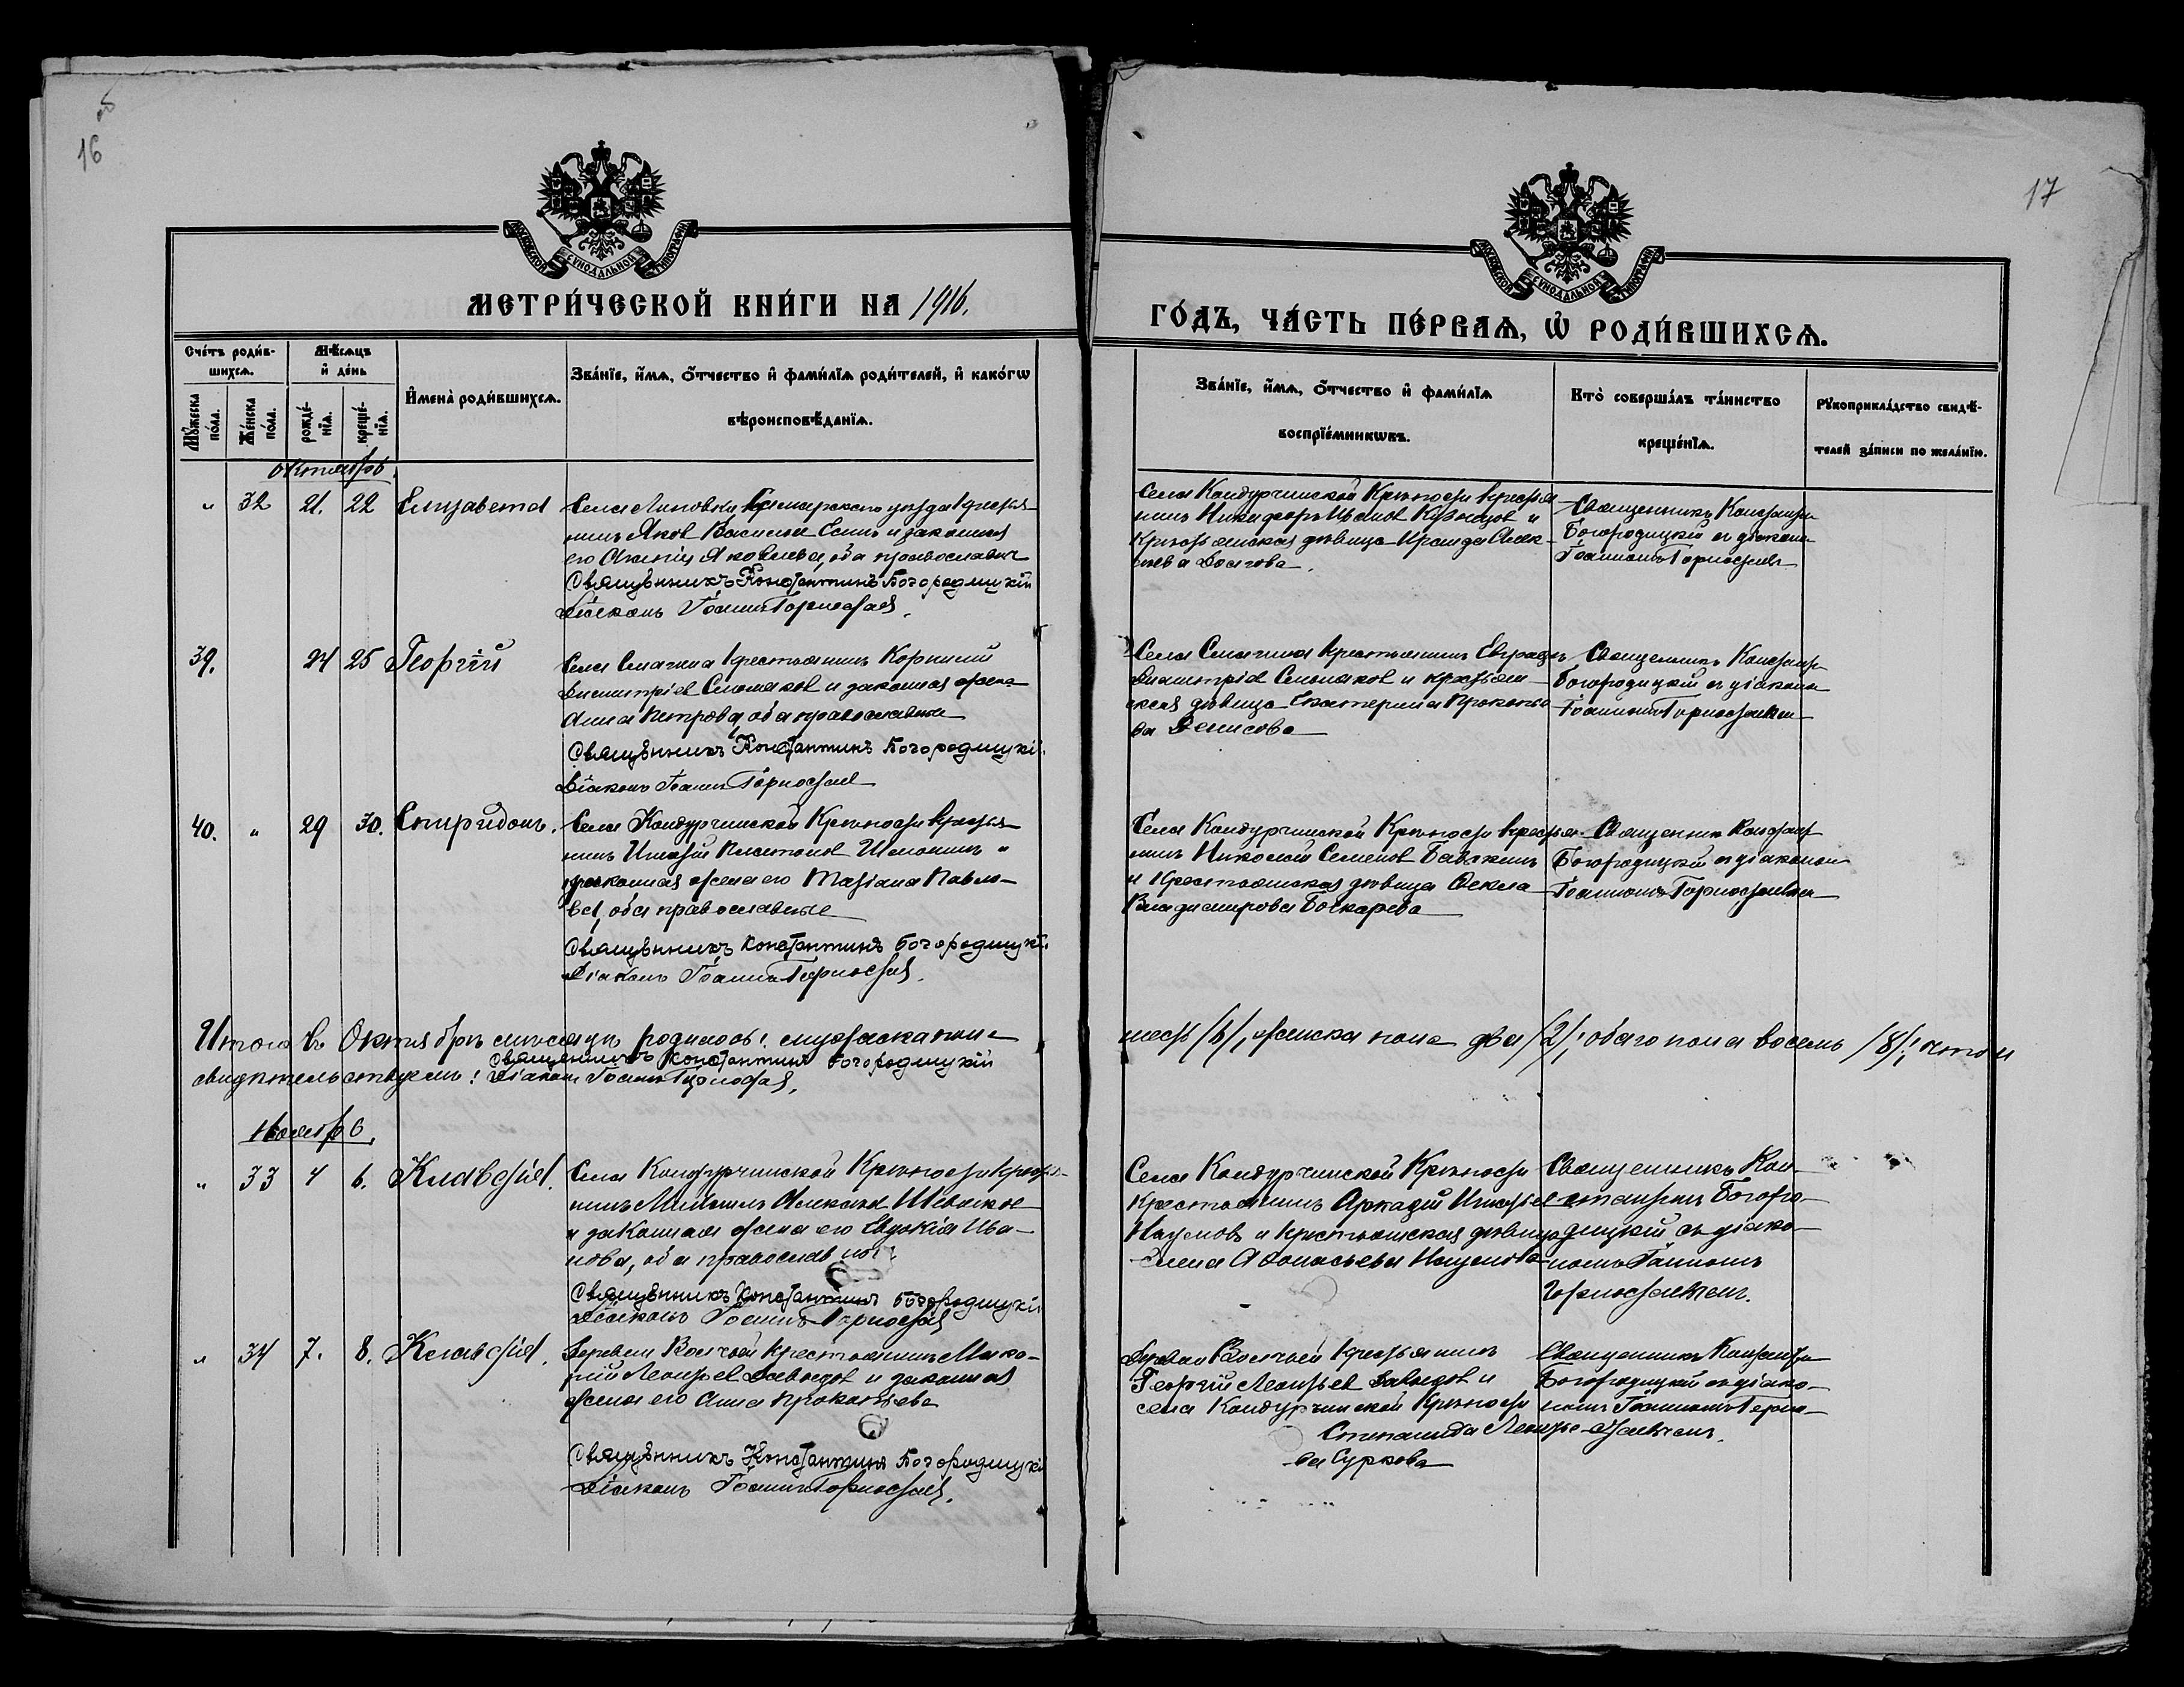 16 об
17
МОСКОВСКОЙ СѴНОДАЛЬНОЙ ТИПОГРАФІИ
МОСКОВСКОЙ СѴНОДАЛЬНОЙ ТИПОГРАФІИ
МЕТРИ́ЧЕСКОЙ КНИ́ГИ НА 1916.
ГО́ДЪ, ЧА́СТЬ ПЕ́РВАѦ, Ѽ РОДИ́ВШИХСѦ.
Сче́тъ роди́в-
шихсѧ.
Мꙋ́жеска по́ла.
Же́нска по́ла.
Мѣ́сѧцъ
и҆ де́нь
рожде́-нїѧ.
креще́-нїѧ.
И҆мена̀ роди́вшихсѧ.
Зва́нїе, и҆́мѧ, ѻ҆́тчество и҆ фами́лїѧ роди́телей, и҆ како́гѡ
вѣроисповѣ́данїѧ.
Зва́нїе, и҆́мѧ, ѻ҆́тчество и҆ фами́лїѧ
воспрїе́мникѡвъ.
Кто̀ соверша́лъ та́инство
креще́нїѧ.
Рꙋкоприкла́дство свидѣ́-
телей за́писи по жела́нїю.
Октябрь.
" 32 21. 22 Елизавета
Села Липовки Самарскаго уѣзда крестья-
нинъ Яков Васильев Есинъ и законная
его Аксинія Яковлева, оба православн
Священникъ Константинъ Богородицкій
Діаконъ Іоаннъ Горностаев.
Села Кондурчинской Крѣпости крестья-
нинъ Никифоръ Ивановъ Кузнецов и
Крестьянская дѣвица Ираида Алек-
сѣева Долгова.
Священникъ Константин
Богородицкій съ діаконом
Іоанномъ Горностаев
39. 24 25 Георгій
Села Смагина крестьянинъ Корнилий
Димитріев Смоляков и законная жена
Анна Петрова, оба православные
Священникъ Константинъ Богородицкій.
Діаконъ Іоаннъ Горностаев
Села Смагина Крестьянинъ Евграфъ
Димитріев Смоляков и крестьян-
ская дѣвица Екатерина Прокопье
ва Денисова
Священникъ Константин
Богородицкій съ діаконом
Іоанномъ Горностаевым
40. " 29 30. Спиридонъ.
Села Кондурчинской Крѣпости крестья-
нинъ Игнатій Платонов Шелонинъ и
законная жена его Татіана Павло-
ва, оба православные
Священникъ Константинъ Богородицкій
Діаконъ Іоаннъ Горностаев.
Села Кондурчинской Крѣпости крестья-
нинъ Николай Семенов Бавскинъ
и Крестьянская дѣвица Ѳекла
Владимирова Бочкарева
Священник Константин
Богородицкій съ діаконом
Іоанномъ Горностаевым
Итого въ Октябрѣ мѣсяцѣ родилось: мужеска пола
шесть /6/, женска пола два /2/; обаго пола восемь /8/; в том
свидѣтельствуемъ: Священникъ Константинъ Богородицкій
Діаконъ Іоаннъ Горностаев.
Ноябрь.
" 33 4 6. Клавдія.
Села Кондурчинской Крѣпости крестья-
нинъ
и законная жена его Евдокія Ива-
нова, оба православные
Священникъ Константинъ Богородицкій
Діаконъ Іоаннъ Горностаев
Села Кондурчинской Крѣпости
Крестьянинъ Аркадій Игнатьев
Наумовъ и крестьянская дѣвица
Елена Аѳонасьева Наумова
Священникъ Кон-
стантинъ Богоро-
дицкій съ діако-
номъ Іоанномъ
Горностаевымъ.
" 34 7. 8. Клавдія.
Деревни Волчьей Крестьянинъ Мака-
рій Леонтьев Давыдов и законная
жена его Анна Прокопьева
Священникъ Константинъ Богородицкій
Діаконъ Іоаннъ Горностаев.
Деревни Волчьей Крестьянинъ
Георгій Леонтьев Давыдов и
села Кондурчинской Крѣпости
Степанида Леонтье-
ва Суркова
Священникъ Константин
Богородицкій съ діако-
номъ Іоанномъ Горно-
стаевымъ.